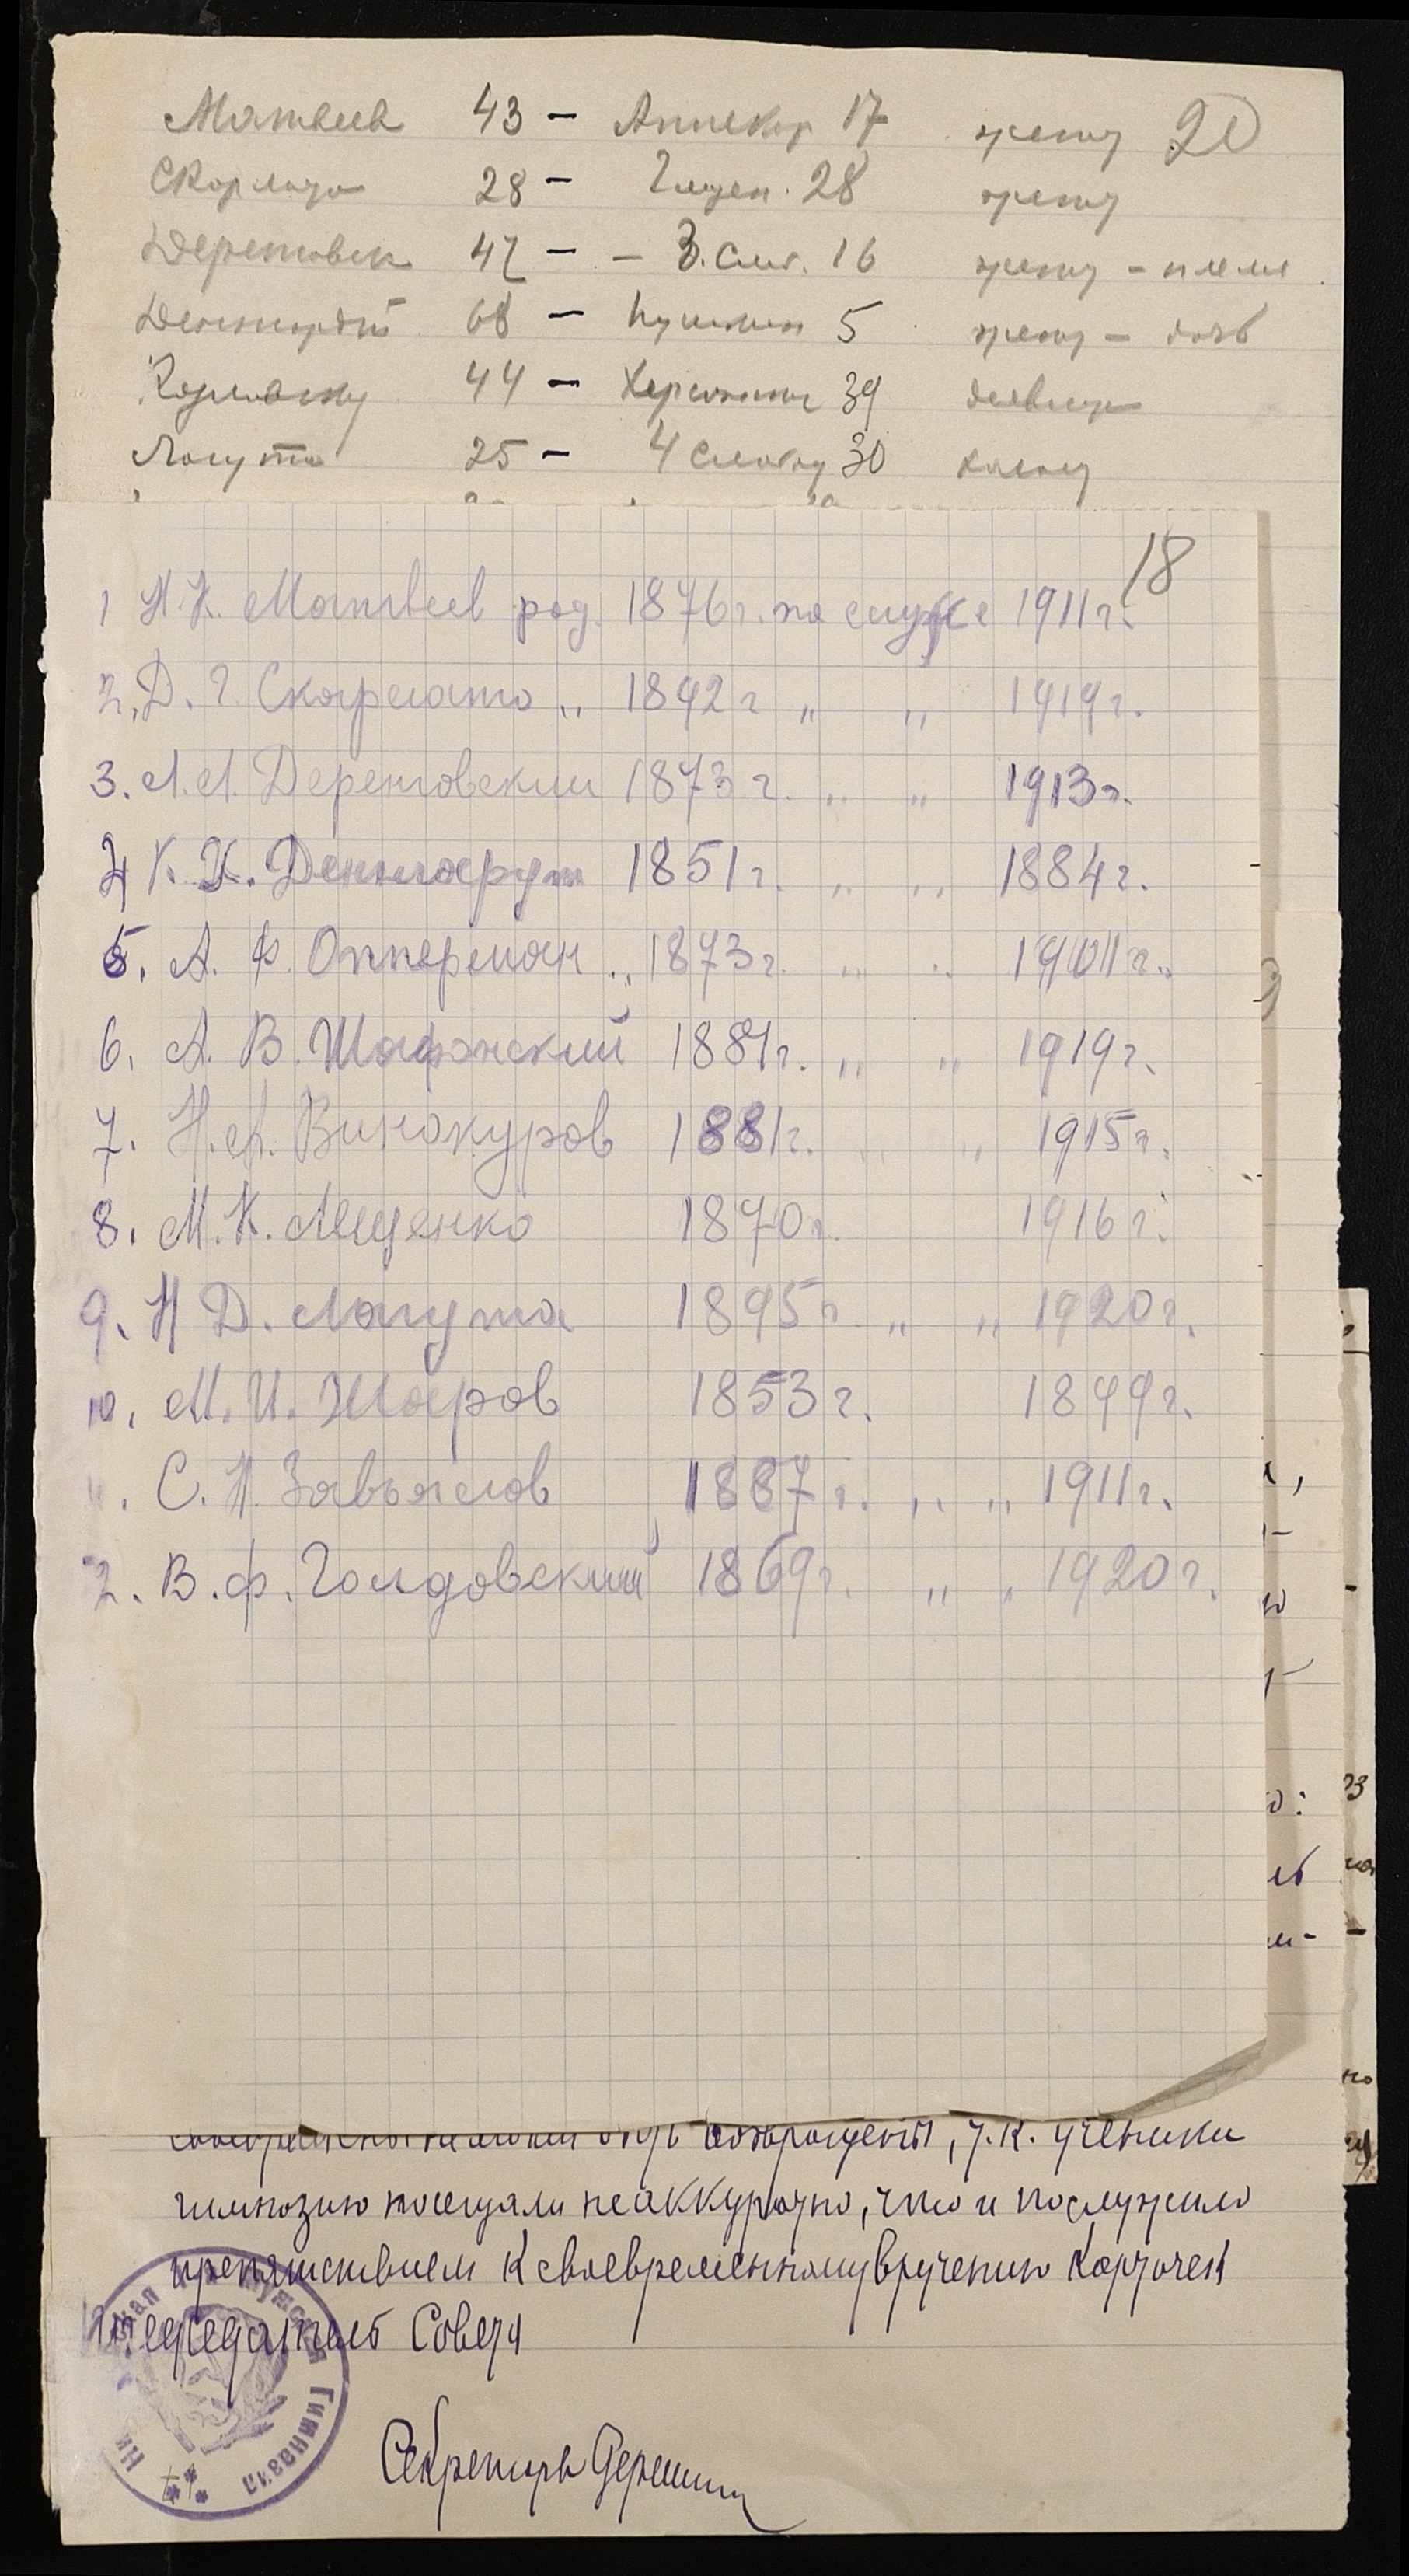 Матвеев 43 — Аптекар 17 жену 20
Скорлато 28 — Глузен. 28 жену
Деретовск 47 — — 3. Слиг. 16 жену – племя
Деннгардт 68 — Пушкин 5 жену – дочь
44 — Херсонск 39 девица
Лагута 25 — 4 Слобод 30 холост
18
1 Н. К. Матвеев род. 1876 г. на службе 1911 г.
2. Д. Г. Скорлато „ 1892 г „ „ 1919 г.
3. Л. Л. Деретовский 1873 г. „ „ 1913 г.
4 К. К. Деннгардт 1851 г. „ „ 1884 г.
5. А. Ф. Опперман „ 1873 г. „ „ 1901 г.
6. А. В. Шафранский 1881 г. „ „ 1919 г.
7. Н. А. Винокуров 1881 г. „ „ 1915 г.
8. М. К. Лещенко 1870 г. 1916 г.
9. Н Д. Лагута 1895 г „ „ 1920 г.
10. М. И. Шаров 1853 г. 1899 г.
С. Н. Завьялов 1887 г. „ „ 1911 г.
2. В. Ф. Голдовский 1869 г. „ „ 1920 г.
возвращены, т. к. ученики
гимназию посещали неаккуратно, что и послужило
препятствием к своевременному вручению карточек
Председатель Совета
Секретарь
Гимназия